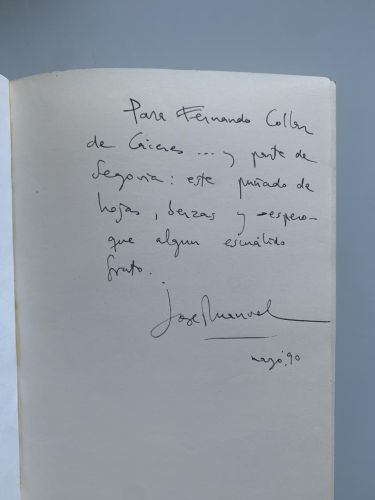 Para Fernando Collar
de Cáceres ... y parte de
Segovia: este puñado de
hojas, berzas y -espero-
que algun escuálido
fruto.
José Manuel
mayo, 90